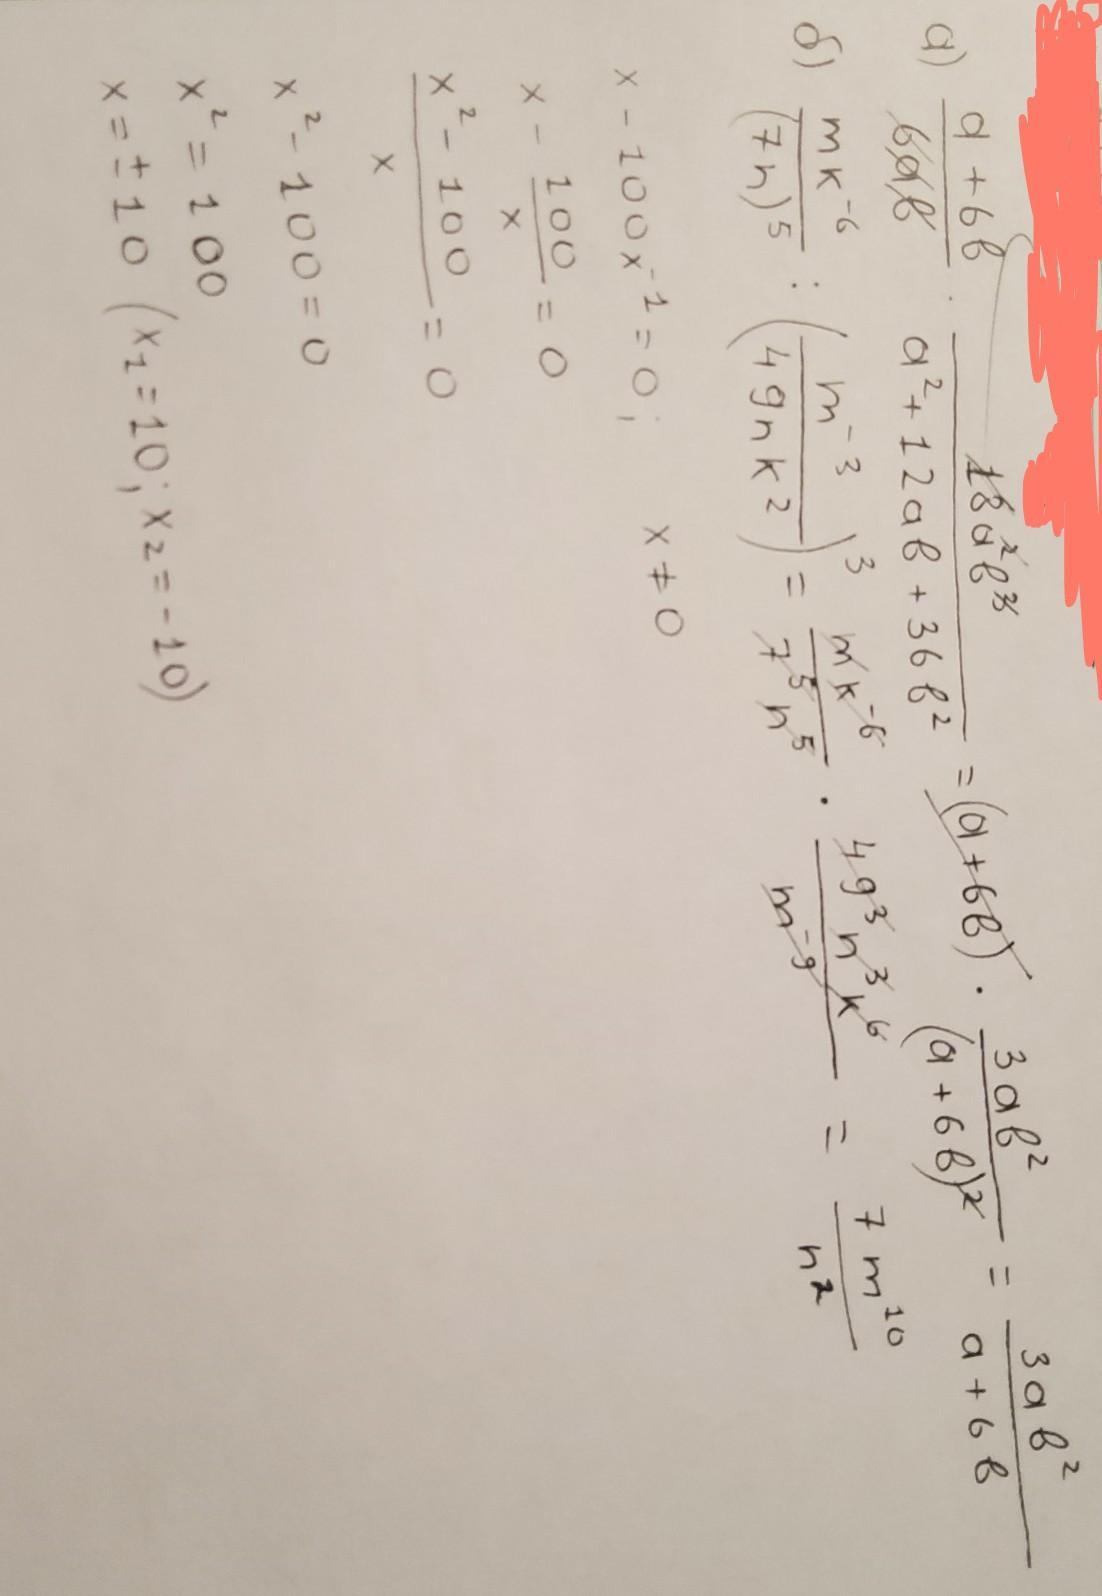 а) (a + 6b)/(6ab) · (18a²b³)/(a² + 12ab + 36b²) = (a + 6b) · (3ab²)/((a + 6b)²) = (3ab²)/(a + 6b)
б) (mk⁻⁶)/((7n)⁵) : (m⁻³/(49nk²))³ = (mk⁻⁶)/(7⁵n⁵) · (49³n³k⁶)/(m⁻⁹) = (7m¹⁰)/(n²)
x - 100x⁻¹ = 0; x ≠ 0
x - 100/x = 0
(x² - 100)/x = 0
x² - 100 = 0
x² = 100
x = ±10 (x₁ = 10; x₂ = -10)